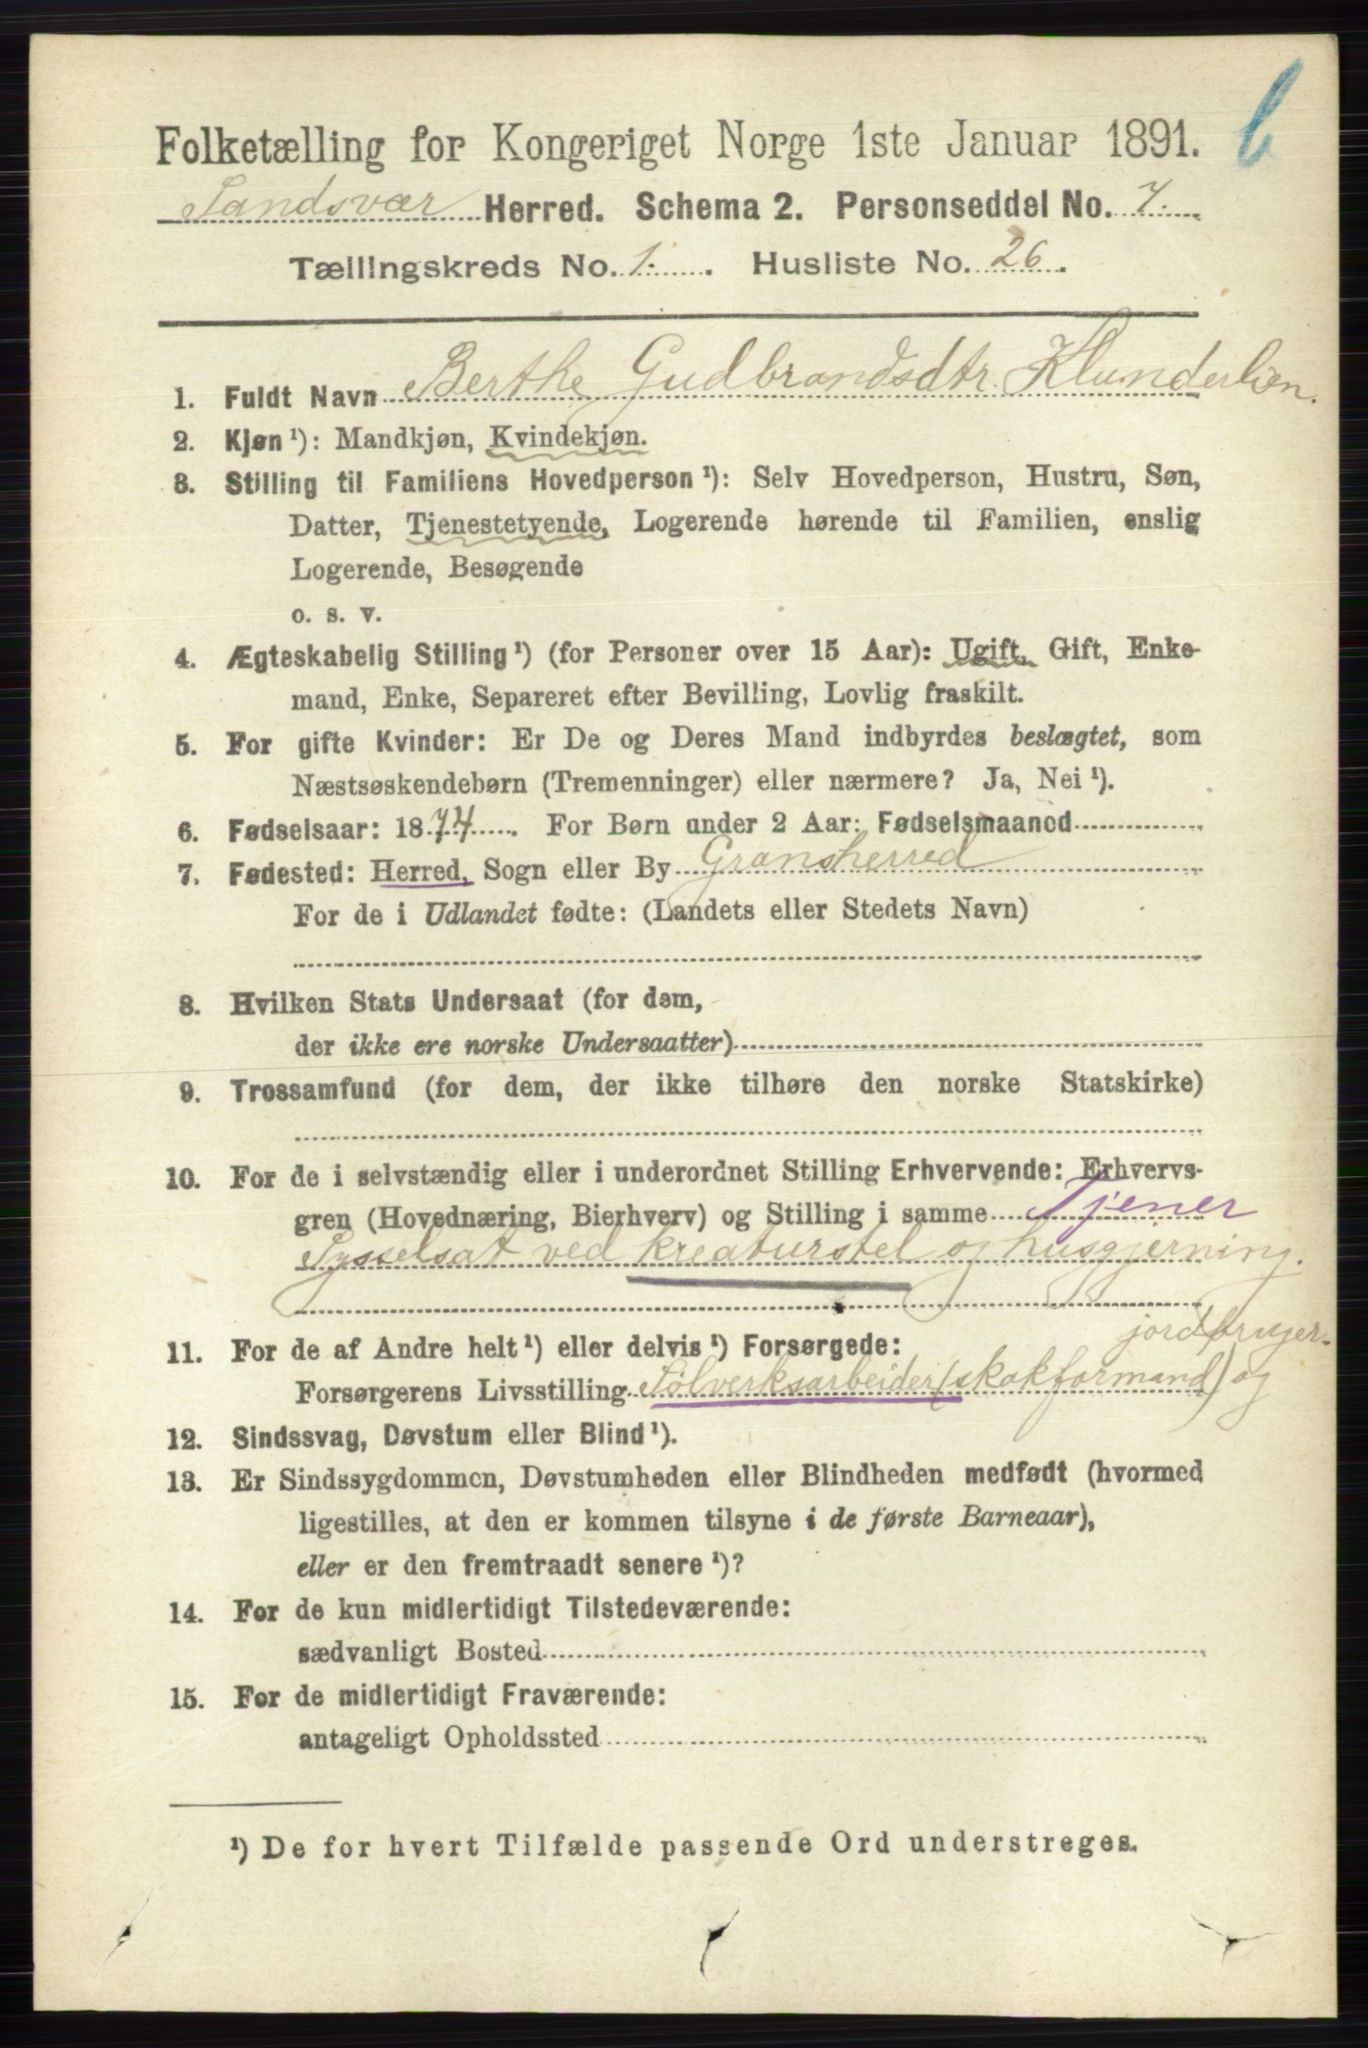 b
Folketælling for Kongeriget Norge 1ste Januar 1891.
Sandsvær Herred. Schema 2. Personseddel No. 7.
Tællingskreds No. 1. Husliste No. 26.
1. Fuldt Navn Berthe Gudbrandsdtr. Klunderlien.
2. Kjøn ¹): Mandkjøn, Kvindekjøn.
3. Stilling til Familiens Hovedperson ¹): Selv Hovedperson, Hustru, Søn,
Datter, Tjenestetyende, Logerende hørende til Familien, enslig
Logerende, Besøgende
o. s. v.
4. Ægteskabelig Stilling ¹) (for Personer over 15 Aar): Ugift, Gift, Enke-
mand, Enke, Separeret efter Bevilling, Lovlig fraskilt.
5. For gifte Kvinder: Er De og Deres Mand indbyrdes beslægtet, som
Næstsøskendebørn (Tremenninger) eller nærmere? Ja, Nei ¹).
6. Fødselsaar: 1874. For Børn under 2 Aar: Fødselsmaaned
7. Fødested: Herred, Sogn eller By Gransherred
For de i Udlandet fødte: (Landets eller Stedets Navn)
8. Hvilken Stats Undersaat (for dem,
der ikke ere norske Undersaatter)
9. Trossamfund (for dem, der ikke tilhøre den norske Statskirke)
10. For de i selvstændig eller i underordnet Stilling Erhvervende: Erhvervs-
gren (Hovednæring, Bierhverv) og Stilling i samme Tjener
Sysselsat ved kreaturstel og husgjerning.
11. For de af Andre helt ¹) eller delvis ¹) Forsørgede: jordbruger.
Forsørgerens Livsstilling Sølverksarbeider (skokformand) og
12. Sindssvag, Døvstum eller Blind ¹).
13. Er Sindssygdommen, Døvstumheden eller Blindheden medfødt (hvormed
ligestilles, at den er kommen tilsyne i de første Barneaar),
eller er den fremtraadt senere ¹)?
14. For de kun midlertidigt Tilstedeværende:
sædvanligt Bosted
15. For de midlertidigt Fraværende:
antageligt Opholdssted
¹) De for hvert Tilfælde passende Ord understreges.